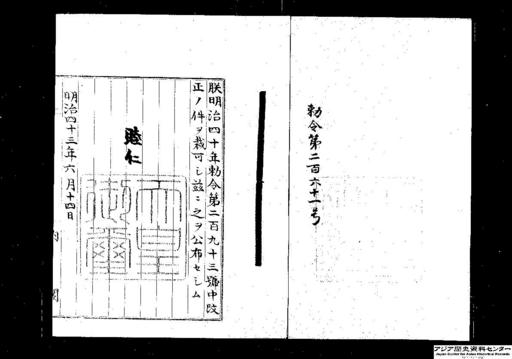 勅令第二百六十一号
朕明治四十年勅令第二百九十三號中改
正ノ件ヲ裁可シ茲ニ之ヲ公布セシム
睦仁
天皇御璽
明治四十三年六月十四日
内閣
アジア歴史資料センター
Japan Center for Asian Historical Records